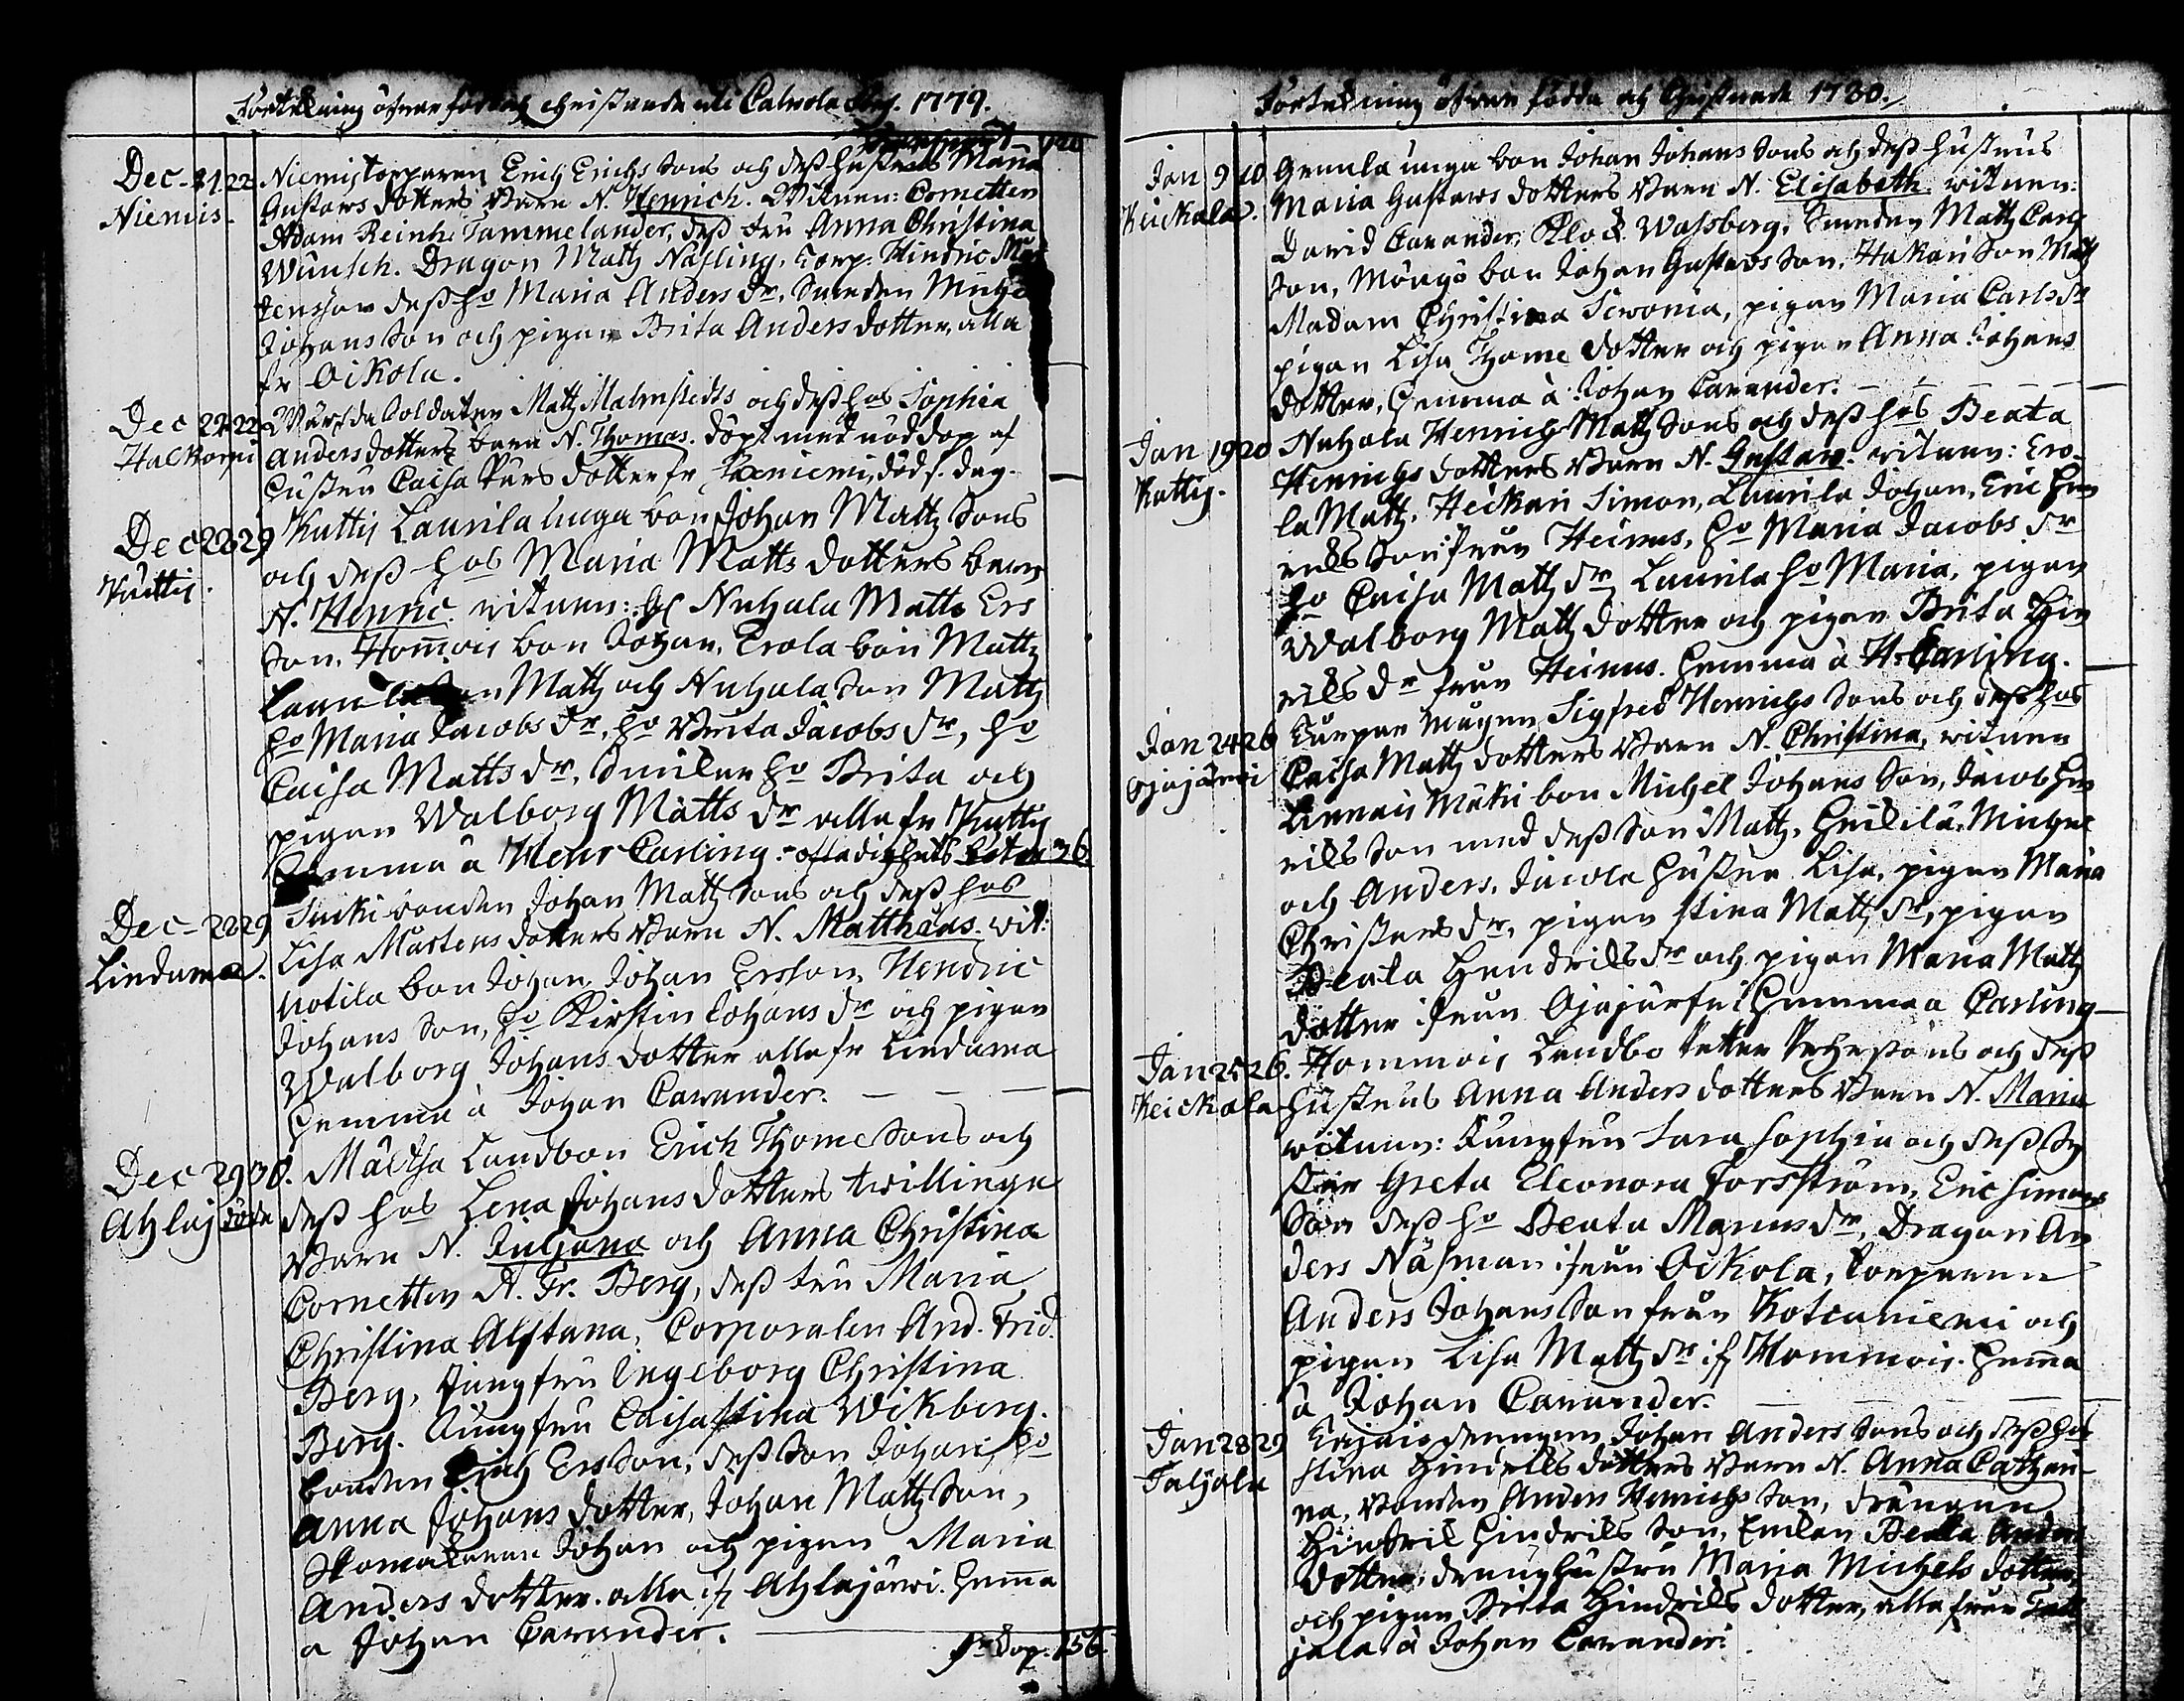 Förtekning öfwer födde och christnade uti Calwola Förs. 1779.
Transport 120
Dec. 21 22 Niemis torparen Erich Erichs Sons och dess hustrus Maria
Niemis. Gustavs dotters Barn N. Henrich. Witnen: Cornetten
Adam Reinh. Tammelander, dess fru Anna Christina
Wünsch. Dragon Matts Näsling, Corp. Hindric Mår
tensson dess ho Maria Anders dr, Smeden Michel
Johans Son och pigan Brita Anders dotter, alla
fr Oikola.
Dec 22 22 Soldaten Matts Malmstedts och dess hos Sophia
Halkorpi Anders dotters barn N. Thomas. döpt med nöddop af
hustru Caisa Pers dotter fr Taeniemi, död s. dag.
Dec 28 29 Kuttis Laurila unga bon Johan Matts Sons
Kuttis. och dess hos Maria Matts dotters barn
N. Henric. witnen: Gl Nuhala Matts Ers
Son, Hommois bon Johan, Erola bon Matts
Laurila Son Matts och Nuhala Son Matts
ho Maria Jacobs dr, ho Brita Jacobs dr, ho
Caisa Matts dr, ho Brita och
pigan Walborg Matts dr alla fr Kuttis
hemma a Henr Carling.
Dec. 28 29 bonden Johan Matts Sons och dess hos
Lindama. Lisa Mårtens dotters Barn N. Matthæus. wit:
Uotila bon Johan, Johan Ersson, Hendric
Johans Son, ho Kirstin Johans dr och pigan
Walborg Johans dotter alla fr Lindama
hemma à Johan Carander.
Dec 29 30. Landbon Erich Thome Sons och
Ahlaj dess hos Lena Johans dotters twillinga
Barn N. Juliana och Anna Christina
Cornetten A. Fr. Berg, dess fru Maria
Christina Alftana, Corporalen And. Frid.
Berg, Jungfru Ingeborg Christina
Berg. Jungfru Caisa Stina Wikberg.
bonden Erich Ersson, dess Son Johan, ho
Anna Johans dotter, Johan Matts Son,
Skomakaren Johan och pigan Maria
Anders dotter. alla if Ahlajärwi. hemma
a Johan Carander.
156
Förtekning öfwer födda och Christnade 1780.
Jan 9 10 unga bon Johan Johans Sons och dess hustrus
Keickala. Maria Gustavs dotters Barn N. Elisabeth. witnen:
David Carander, Klock. Wassberg, Smeden Matts Carls
Son, bon Johan Gustavs Son, Hakari Son Matts
Madam Christina Sevonia, pigan Maria Carls dr
pigan Lisa Thome dotter och pigan Anna Johans
dotter, hemma à Johan Carander.
Jan 19 20 Nuhala Henrich Matts Sons och dess hos Beata
Kuttis. Henrichs dotters Barn N. Gustaw. witnen: Ero
la Matts, Heikari Simon, Laurila Johan, Eric Hen
riks Son från Heinus, ho Maria Jacobs dr
ho Caisa Matts dr Laurila ho Maria, pigan
Walborg Matts dotter och pigan Brita Hen
riks dr från Heinus. hemma à H. Carling.
Jan 24 26 Sigfred Henrichs Sons och dess hos
Ojajärwi Caisa Matts dotters Barn N. Christina, witnen
Mäki bon Michel Johans Son, Jacob Hen
riks Son med dess Son Matts, Michel
och Anders, hustru Lisa, pigan Maria
Christers dr, pigan Stina Matts dr, pigan
Beata Hendriks dr och pigan Maria Matts
dotter ifrån Ojajärfwi hemma a Carling
Jan 25 26. Hommois Landbo Petter Sons och dess
Keickala hustrus Anna Anders dotters Barn N. Maria
witnen: Jungfru Sara Sophia och dess Sy
ster Greta Eleonora Forsström, Eric Simons
Son dess ho Beata Magnus dr, Dragon An
ders Näsman ifrån Oikola, torparen
Anders Johans Son från Kotcaniemi och
pigan Lisa Matts dr if Hommois. hemma
à Johan Carander.
Jan 28 29 drengen Johan Anders Sons och dess hos
Taljala Stina Hindriks dotters Barn N. Anna Cathari
na, Bonden Anders Henrichs Son, drengen
Hindrik Hindriks Son, Enkan Beata Anders
dotter, dreng hustru Maria Michels dotter,
och pigan Brita Hindriks dotter, alla från Tall
jala à Johan Carander.